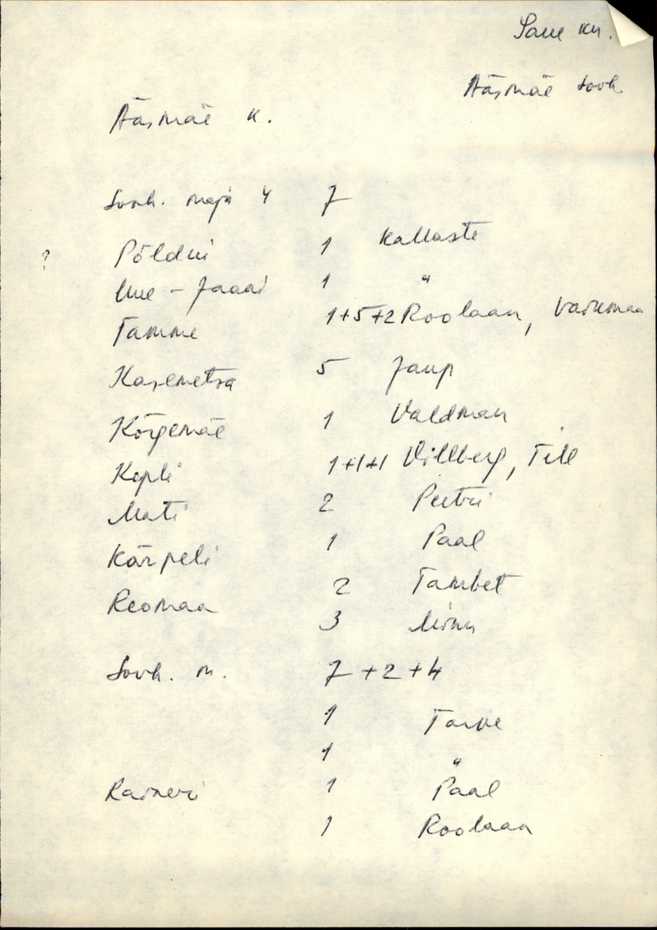 Saue kn.
Ääsmäe sovh.
Ääsmäe k.
Sovh. maja 4 7
? Põldni 1 Kallaste
Uue-Jaani 1 "
Tamme 1+5+2 Roolaan,
Kasemetsa 5 Jaup
Kõrgemäe 1 Valdman
Kopli 1+1+1 Villberg, Till
Mati 2 Peetri
Kärpeli 1 Paal
Reomaa 2 Tambet
3
Sovh. m. 7+2+4
1 Tarve
1 "
Raineri 1 Paal
1 Roolaan